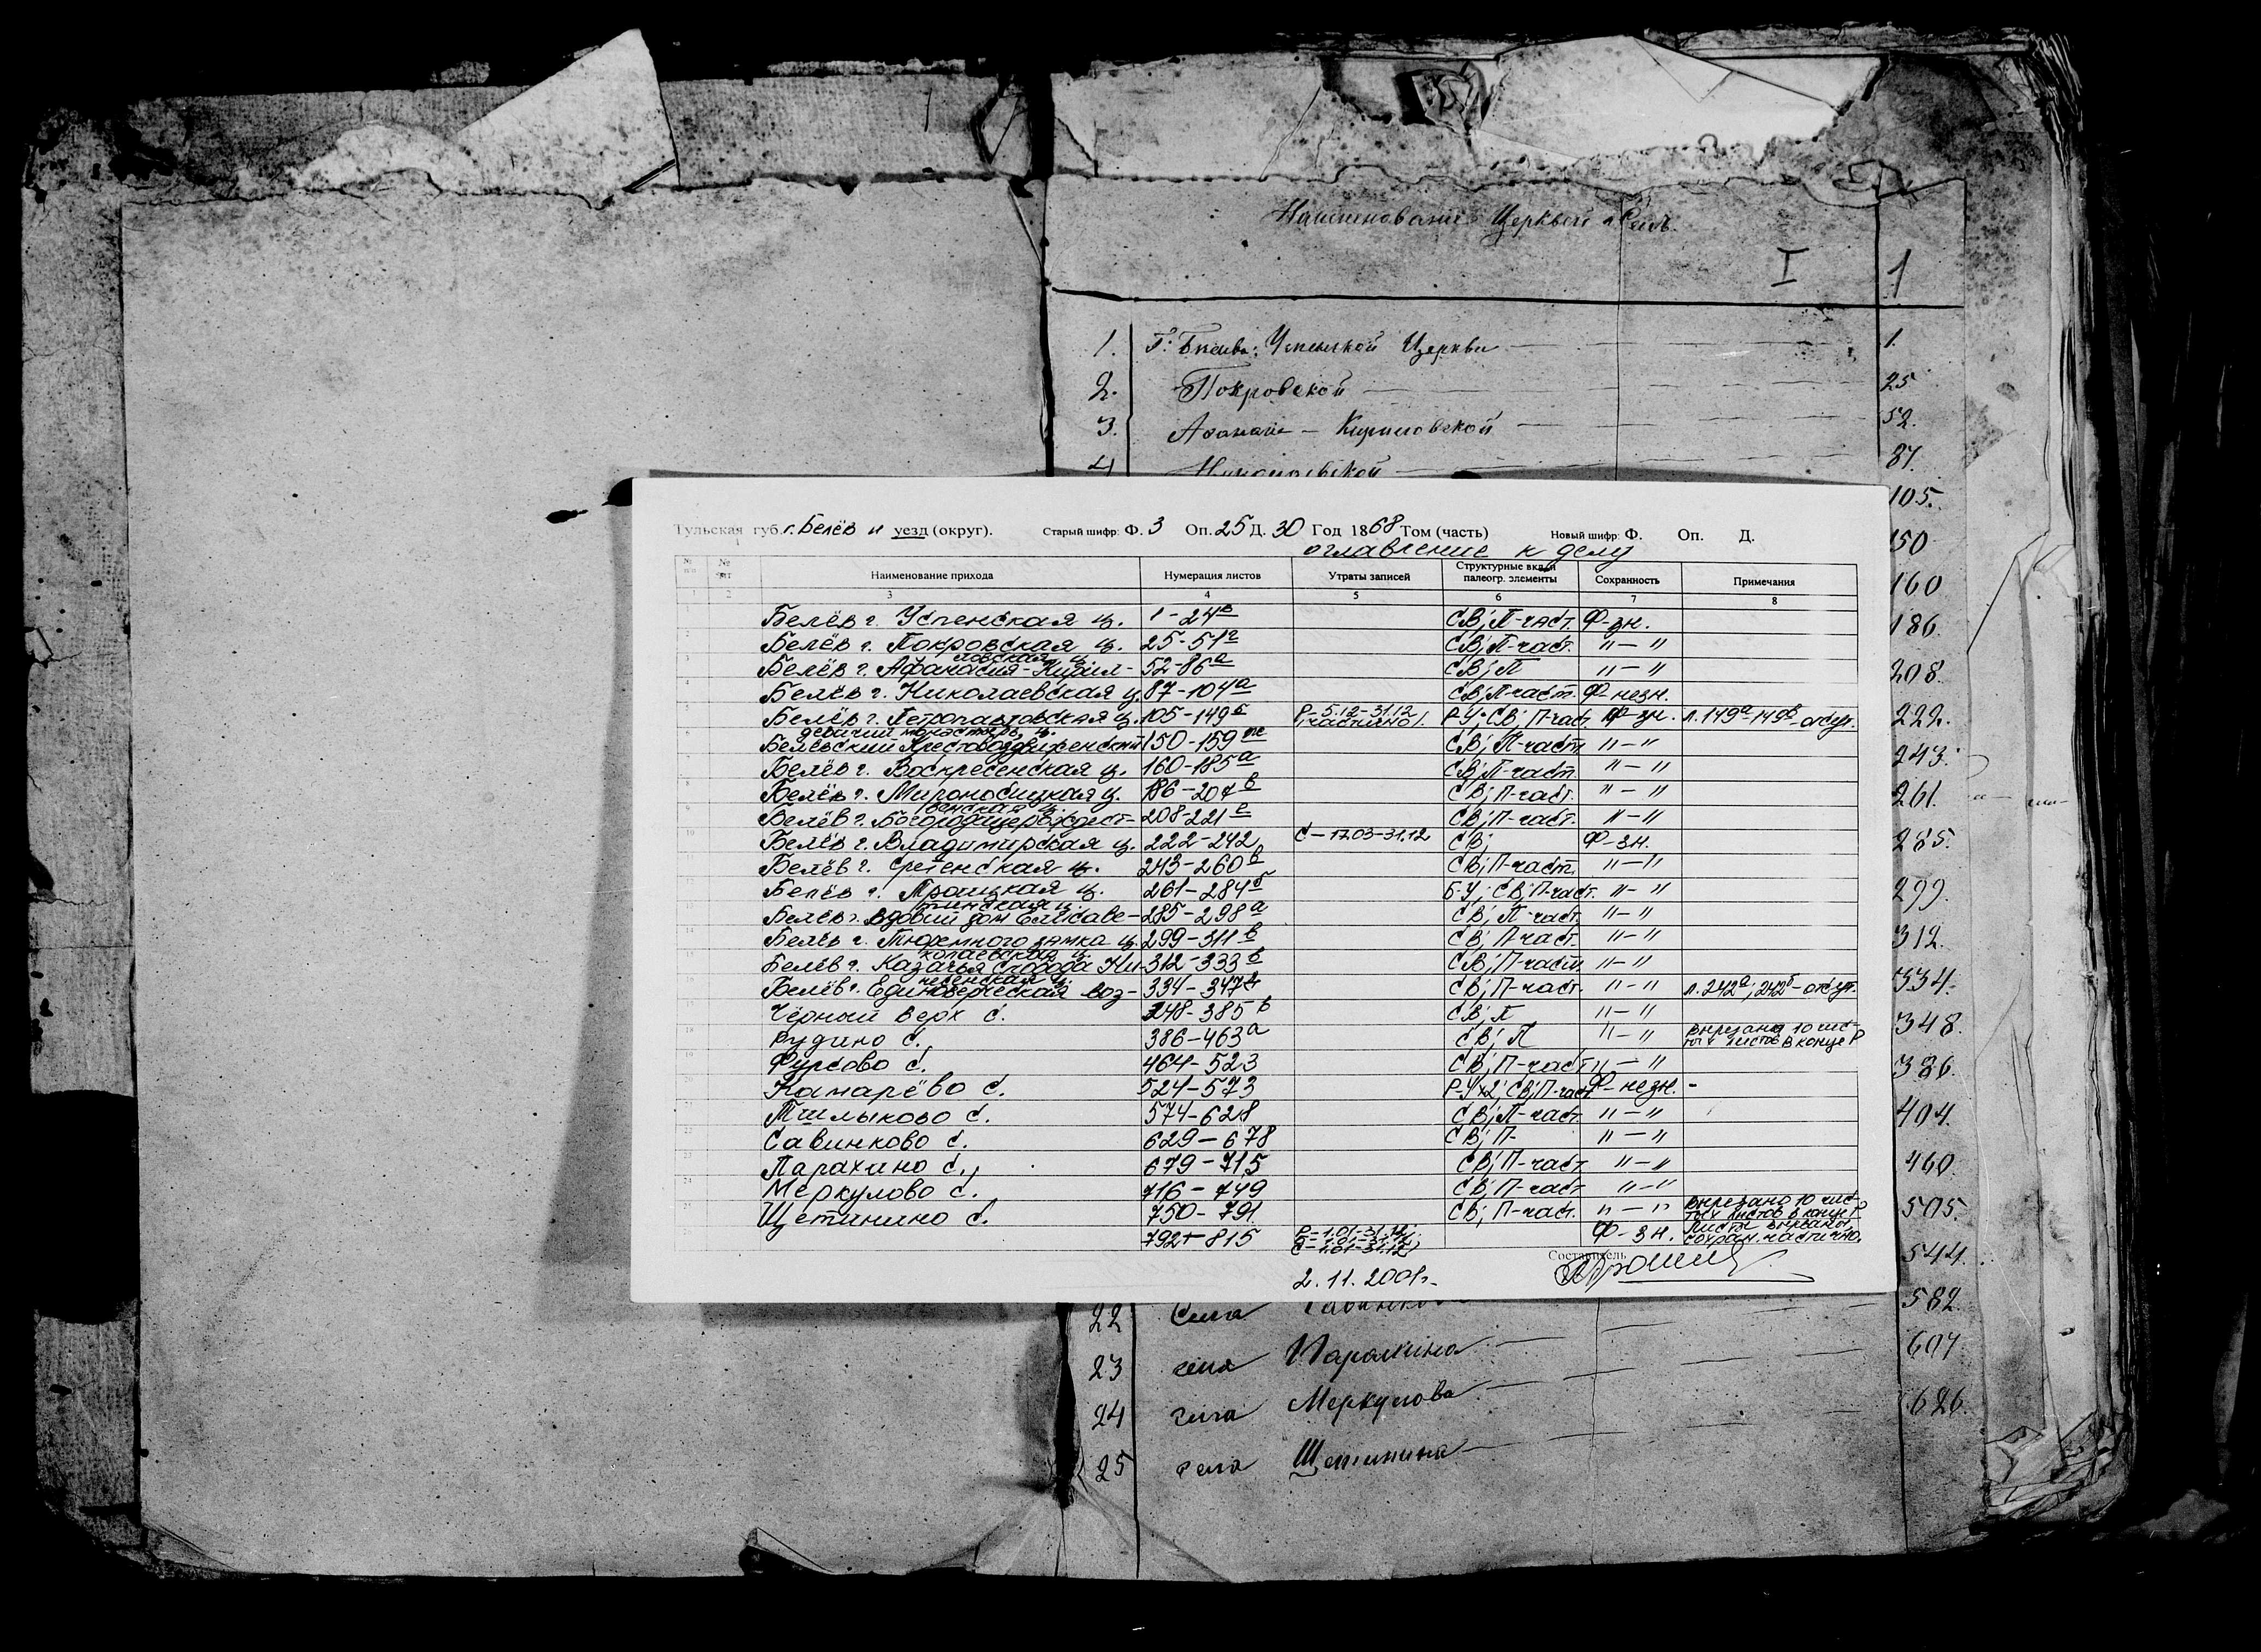 Наименованiе Церквей и Селъ.
I 1
1. Г. Бѣлева: Успенской Церкви 1.
2. Покровской 25
3. Афанасiе - Кириловской 52.
4 Николаевской 87.
105.
150
160
186.
208.
222.
243.
261.
285.
299.
312.
334.
348.
386.
404.
460.
505.
544.
582.
607
626.
Тульская губ. г. Белёв и уезд (округ). Старый шифр: Ф. 3 Оп. 25 Д. 30 Год 1868 Том (часть) Новый шифр: Ф. Оп. Д.
оглавление к делу
№ п/п № Наименование прихода Нумерация листов Утраты записей Структурные вкл. и палеогр. элементы Сохранность Примечания
1 2 3 4 5 6 7 8
1 Белёв г. Успенская ц. 1-24в СВ; П-част. Ф-зн.
2 Белёв г. Покровская ц. 25-51г СВ; П-част. "-"
3 Белёв г. Афанасия-Кирил-ловская ц. 52-86а СВ; П "-"
4 Белёв г. Николаевская ц. 87-104а СВ; П-част. Ф-незн.
5 Белёв г. Петропавловская ц. 105-149б Р-5.12-31.12 /частично/. Р-У; СВ; П-част. Ф-зн. л. 149а-149в-отсут.
6 Белевский Крестовоздвиженский девичий монастырь, ц. 150-159ж СВ; П-част. "-"
7 Белёв г. Воскресенская ц. 160-185а СВ; П-част. "-"
8 Белёв г. Мироносицкая ц. 186-207в СВ; П-част. "-"
9 Белёв г. Богородицерождест-венская ц. 208-221е СВ; П-част. "-"
10 Белёв г. Владимирская ц. 222-242 С-17.03-31.12 СВ; Ф-зн.
11 Белёв г. Сретенская ц. 243-260в СВ; П-част. "-"
12 Белёв г. Троицкая ц. 261-284б Б-У; СВ; П-част. "-"
13 Белёв г. Вдовий дом Елисаве-тинская ц. 285-298а СВ; П-част. "-"
14 Белёв г. Тюремного замка ц. 299-311в СВ; П-част. "-"
15 Белёв г. Казачья слобода Ни-колаевская ц. 312-333в СВ; П-част. "-"
16 Белёв г. Единоверческая воз-несенская ц. 334-347 СВ; П-част. "-" л. 242а; 242б-отсут.
17 Чёрный верх с. 348-385в СВ; П "-"
18 Рудино с. 386-463а СВ; П "-" вырезано 10 чис-тых листов в конце Р
19 Фурсово с. 464-523 СВ; П-част "-"
20 Камарёво с. 524-573 Р-Ух2; СВ; П-част Ф-незн. -
21 Тшлыково с. 574-628 СВ; П-част. "-"
22 Савинково с. 629-678 СВ; П- "-"
23 Парахино с., 679-715 СВ; П-част "-"
24 Меркулово с. 716-749 СВ; П-част "-"
25 Щетинино с. 750-791 СВ; П-част. "-" вырезано 10 чис-тых листов в конце Р
792-815 Р-1.01-31.12; Б-1.01-31.12; С-1.01-31.12 Ф-зн. Листы вырваны, сохран. частично.
Составитель
2.11.2001г.
22 Села Савинкова
23 села Парахина
24 села Меркулова
25 села Щетинина